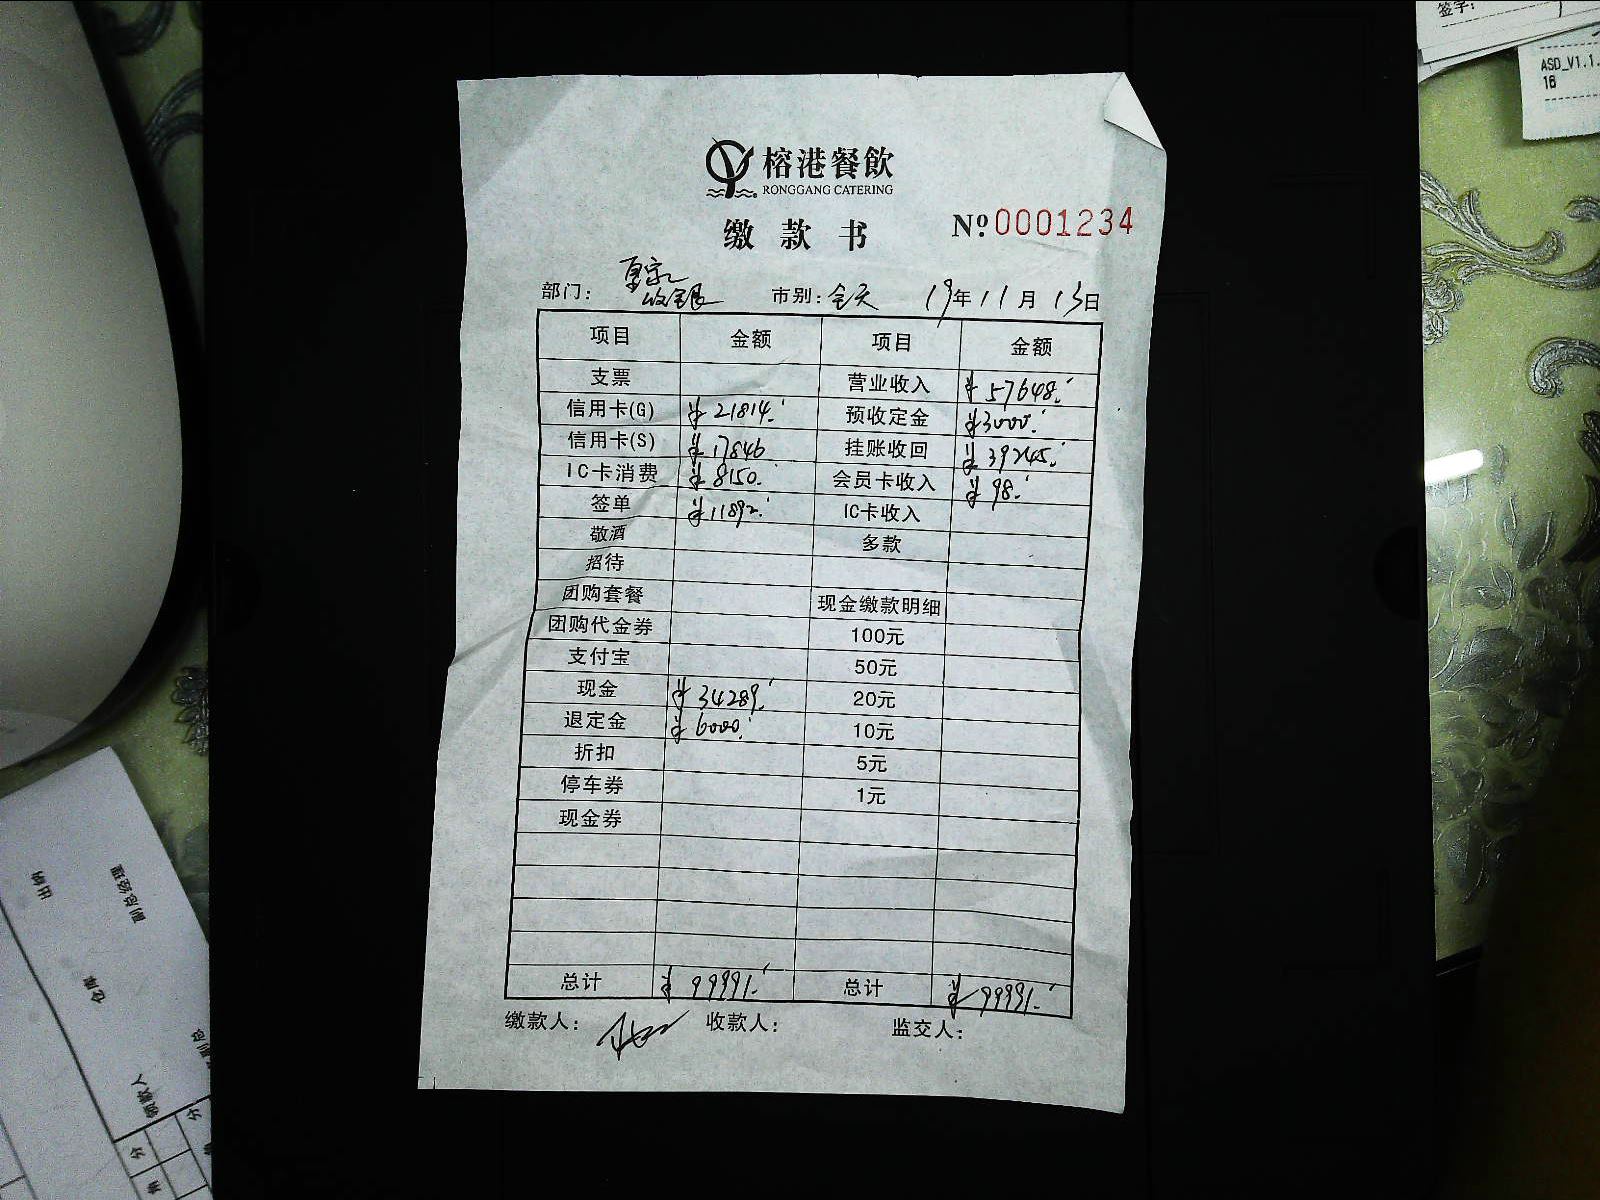 签字:
ASD_V1.1.
16
榕港餐飲
RONGGANG CATERING
缴款书
Nº 0001234
部门: 收银 市别: 全天 19年11月13日
项目 金额 项目 金额
支票 营业收入 ¥57648.-
信用卡(G) ¥21814.- 预收定金 ¥3000.-
信用卡(S) ¥17846 挂账收回 ¥39245.-
IC卡消费 ¥8150.- 会员卡收入 ¥98.-
签单 ¥11892.- IC卡收入
敬酒 多款
招待
团购套餐 现金缴款明细
团购代金券 100元
支付宝 50元
现金 ¥34289.- 20元
退定金 ¥6000.- 10元
折扣 5元
停车券 1元
现金券
总计 ¥99991.- 总计 ¥99991.-
缴款人: 收款人: 监交人:
出纳
副总经理
仓库
领款人
分
分